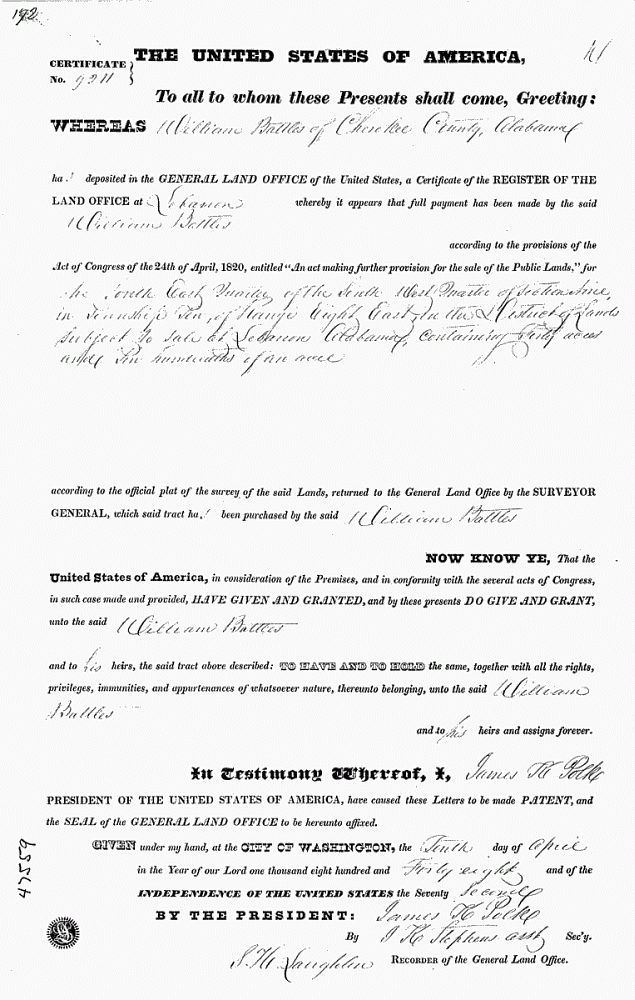 192
THE UNITED STATES OF AMERICA,
CERTIFICATE
No. 9211
To all to whom these Presents shall come, Greeting:
WHEREAS William Battles of Cherokee County, Alabama
ha deposited in the GENERAL LAND OFFICE of the United States, a Certificate of the REGISTER OF THE
LAND OFFICE at Lebanon whereby it appears that full payment has been made by the said
William Battles
according to the provisions of the
Act of Congress of the 24th of April, 1820, entitled "An act making further provision for the sale of the Public Lands," for
the South East Quarter of the South West Quarter of Section Nine,
in Township Ten, of Range Eight East, in the District of Lands
subject to sale at Lebanon Alabama, containing forty acres
and Ten hundredths of an acre
according to the official plat of the survey of the said Lands, returned to the General Land Office by the SURVEYOR
GENERAL, which said tract ha been purchased by the said William Battles
NOW KNOW YE, That the
United States of America, in consideration of the Premises, and in conformity with the several acts of Congress,
in such case made and provided, HAVE GIVEN AND GRANTED, and by these presents DO GIVE AND GRANT,
unto the said William Battles
and to his heirs, the said tract above described: TO HAVE AND TO HOLD the same, together with all the rights,
privileges, immunities, and appurtenances of whatsoever nature, thereunto belonging, unto the said William
Battles
and to his heirs and assigns forever.
In Testimony Whereof, I, James K Polk
PRESIDENT OF THE UNITED STATES OF AMERICA, have caused these Letters to be made PATENT, and
the SEAL of the GENERAL LAND OFFICE to be hereunto affixed.
GIVEN under my hand, at the CITY OF WASHINGTON, the Tenth day of April
in the Year of our Lord one thousand eight hundred and Forty eight and of the
INDEPENDENCE OF THE UNITED STATES the Seventy Second
BY THE PRESIDENT: James K Polk
By J K Stephens asst Sec'y.
S. H. Laughlin RECORDER of the General Land Office.
47559